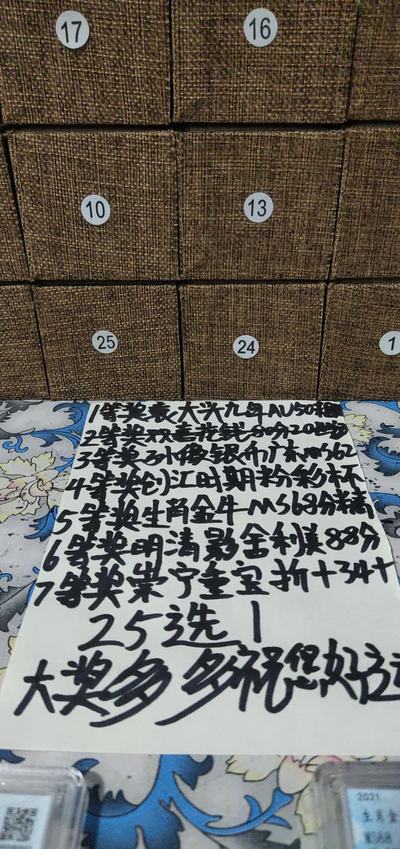 17
16
10
13
25
24
1
1等奖袁大头九年AU50
2等奖双喜花钱80分
3等奖 银币广东MS62
4等奖 江时期粉彩杯
5等奖生肖金牛MS68分精
6等奖明清影金利美88分
7等奖崇宁重宝折十34+
25选1
大奖多多祝您好运
2021
生肖金
MS68